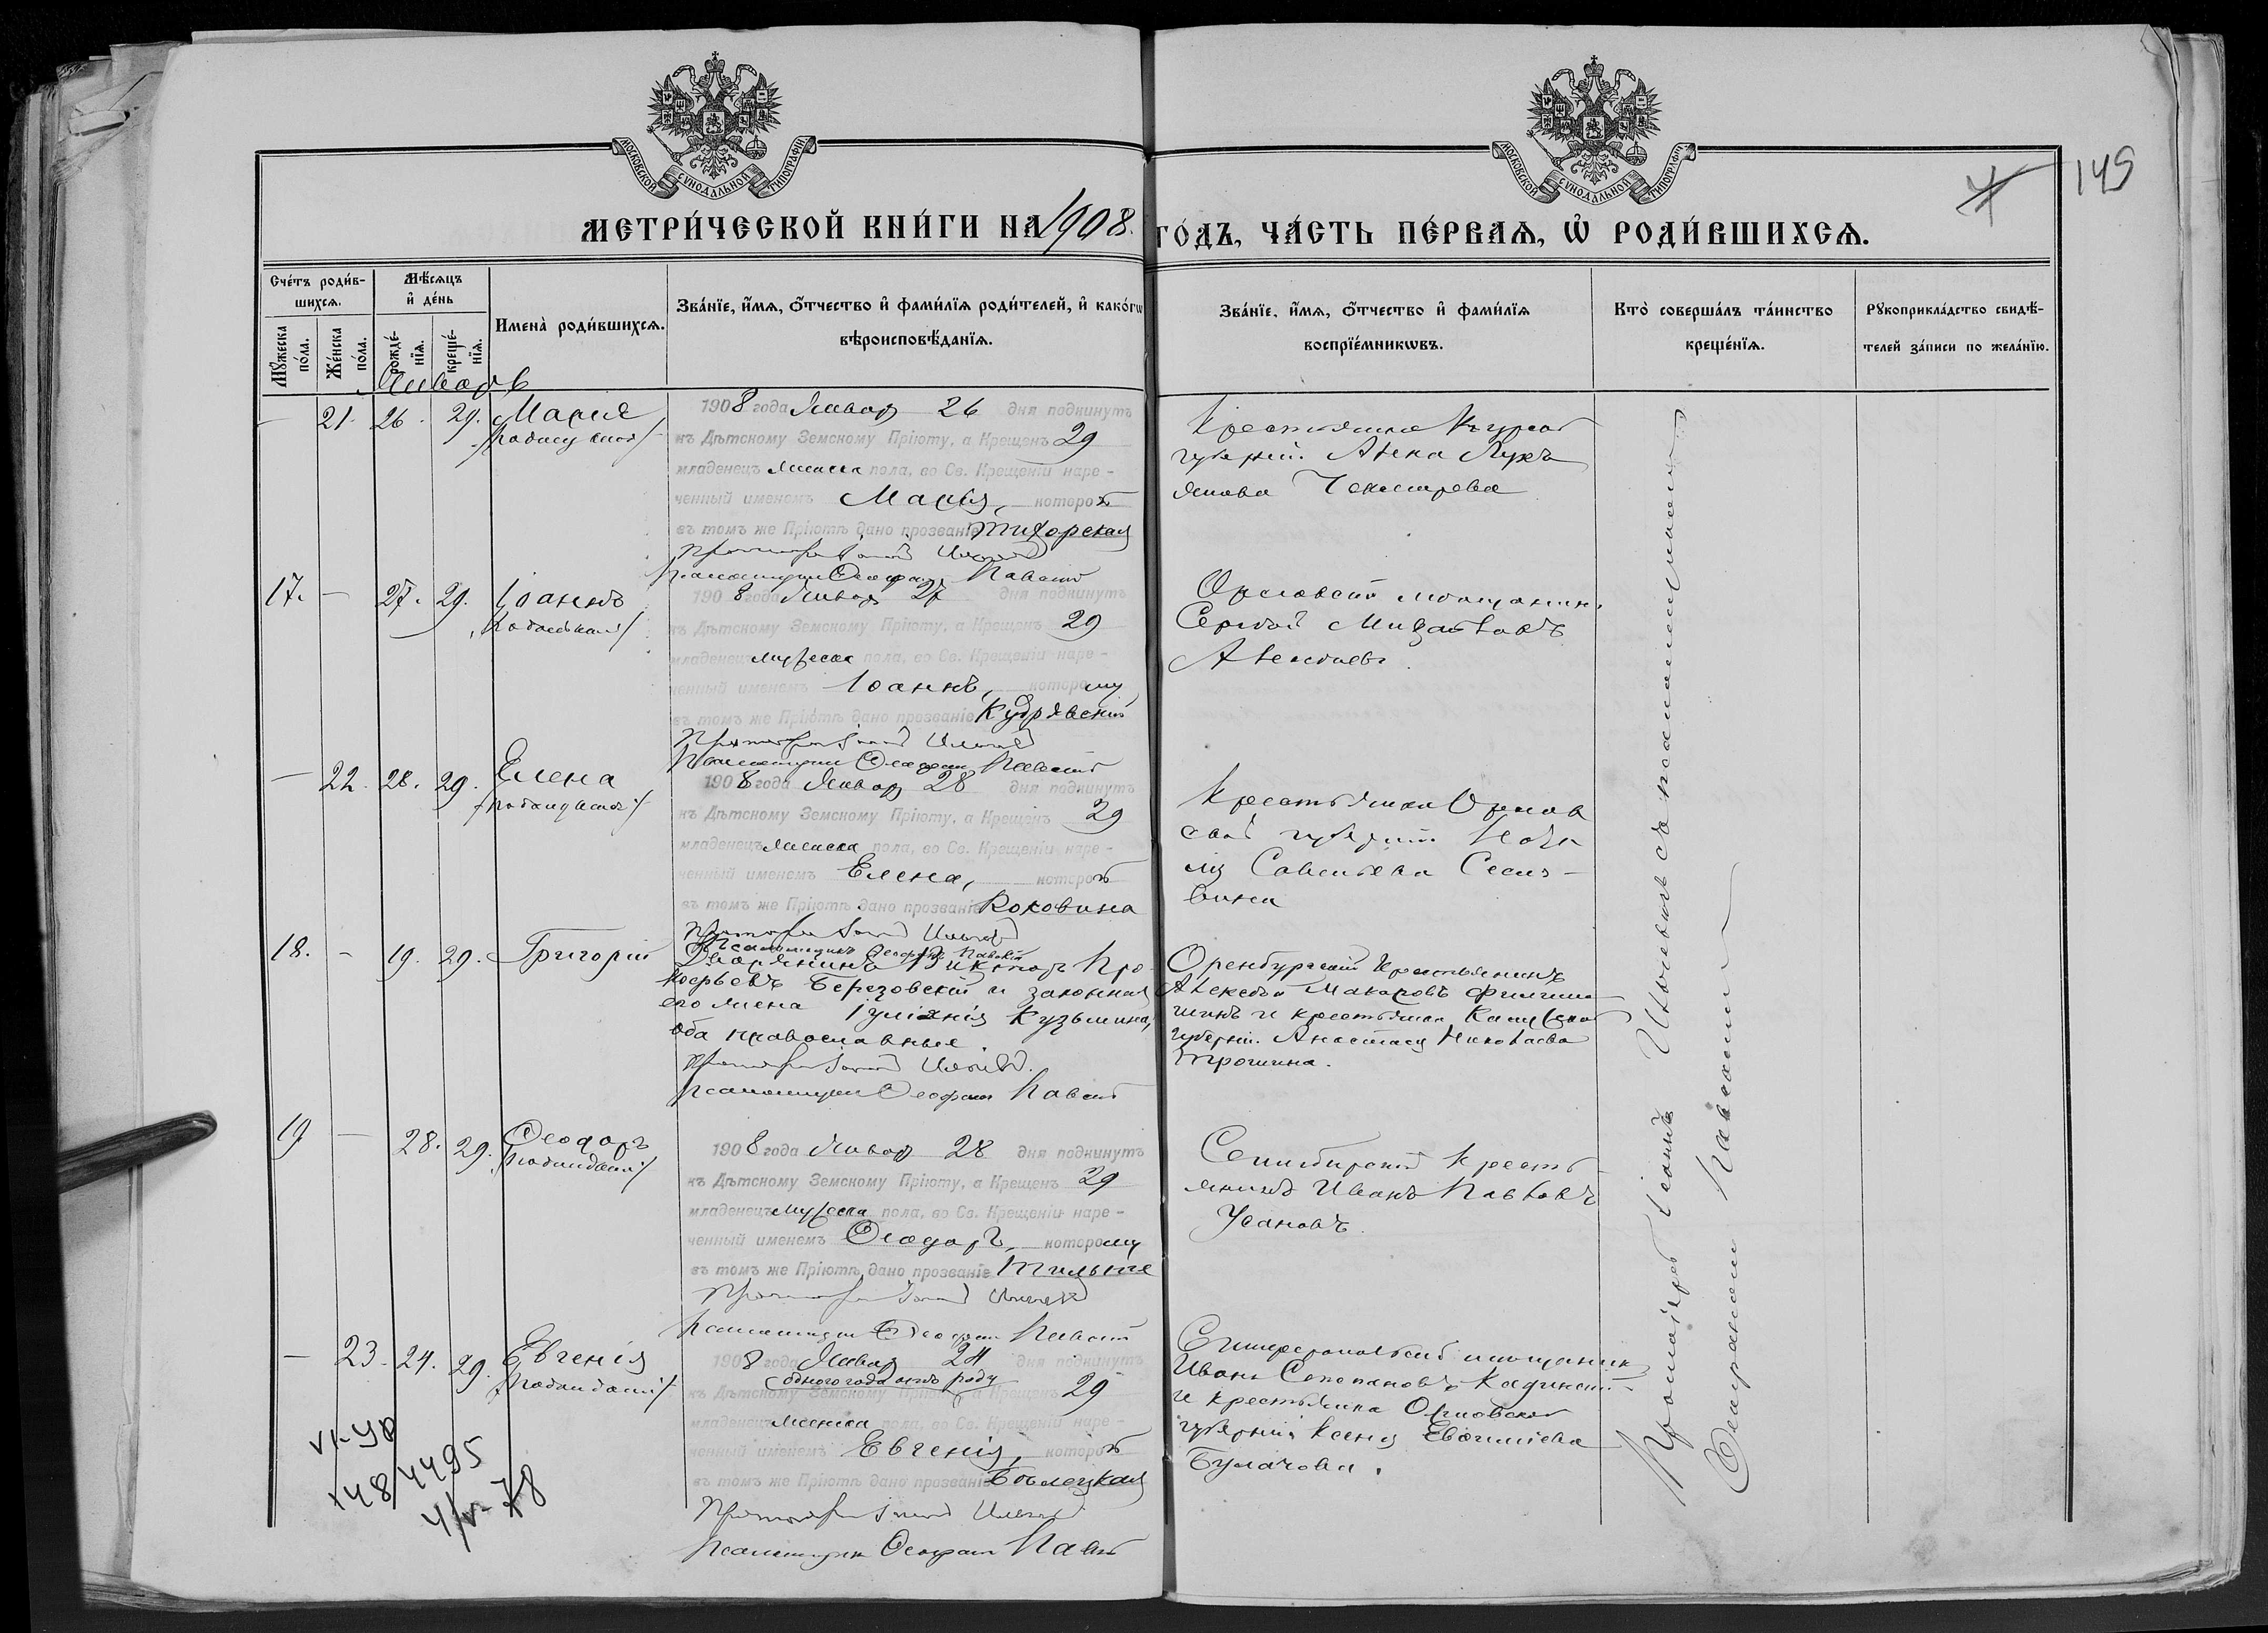 МОСКОВСКОЙ СѴНОДАЛЬНОЙ ТИПОГРАФІИ
МОСКОВСКОЙ СѴНОДАЛЬНОЙ ТИПОГРАФІИ
145
МЕТРИ́ЧЕСКОЙ КНИ́ГИ НА 1908. ГО́ДЪ, ЧА́СТЬ ПЕ́РВАѦ, Ѡ҆ РОДИ́ВШИХСѦ.
Сче́тъ роди́в-
шихсѧ.
Мѣ́сѧцъ
и҆ де́нь
Мꙋ́жеска
по́ла.
Же́нска
по́ла.
рожде́-
нїѧ.
креще́-
нїѧ.
Имена̀ роди́вшихсѧ.
Зва́нїе, и҆́мѧ, ѻ҆́тчество и҆ фами́лїѧ роди́телей, и҆ како́гѡ
вѣроисповѣ́данїѧ.
Зва́нїе, и҆́мѧ, ѻ҆́тчество и҆ фами́лїѧ
воспрїе́мникѡвъ.
Кто̀ соверша́лъ та́инство
креще́нїѧ.
Рꙋкоприкла́дство свидѣ́-
телей за́писи по жела́нїю.
Январь
— 21. 26. 29. Марія
1908 года Январ 26 дня подкинутъ
къ Дѣтскому Земскому Пріюту, а Крещенъ 29
младенецъ женска пола, во Св. Крещеніи наре-
ченный именемъ Марія, которой
въ томъ же Пріютѣ дано прозваніе Тихорская
Протоіерей Іоаннъ
Псаломщикъ Ѳеофанъ Павскій
Крестьянка Курской
губерніи Анна Лукъ
янова
17. — 27. 29. Іоаннъ
1908 года Январ 27 дня подкинутъ
къ Дѣтскому Земскому Пріюту, а Крещенъ 29
младенецъ мужеска пола, во Св. Крещеніи наре-
ченный именемъ Іоаннъ, которому
въ томъ же Пріютѣ дано прозваніе Кудрявскій
Протоіерей Іоаннъ
Псаломщикъ Ѳеофанъ Павскій
Орловскій мѣщанинъ
Сергѣй Михайловъ
— 22. 28. 29. Елена
1908 года Январ 28 дня подкинутъ
къ Дѣтскому Земскому Пріюту, а Крещенъ 29
младенецъ женска пола, во Св. Крещеніи наре-
ченный именемъ Елена, которой
въ томъ же Пріютѣ дано прозваніе Коковина
Протоіерей Іоаннъ
Псаломщикъ Ѳеофанъ Павскій
Крестьянка Орлов
ской губерніи
Савельева
18. — 19. 29. Григорій
Дворянинъ Викторъ Про-
кофьевъ Березовскій и законная
его жена Іуліанія Кузьмина,
оба православные
Протоіерей Іоаннъ
Псаломщикъ Ѳеофанъ Павскій
Оренбургскій крестьянинъ
Алексѣй Макаровъ
и крестьянка Калужской
губерніи Анастасія Николаева
Трошина.
19 — 28. 29. Ѳеодоръ
1908 года Январ 28 дня подкинутъ
къ Дѣтскому Земскому Пріюту, а Крещенъ 29
младенецъ мужеска пола, во Св. Крещеніи наре-
ченный именемъ Ѳеодоръ, которому
въ томъ же Пріютѣ дано прозваніе
Протоіерей Іоаннъ
Псаломщикъ Ѳеофанъ Павскій
Симбирскій кресть
янинъ Иванъ Павловъ
Усановъ.
— 23. 24. 29. Евгенія
1908 года Январ 24 дня подкинутъ
одного года отъ роду
къ Дѣтскому Земскому Пріюту, а Крещенъ 29
младенецъ женска пола, во Св. Крещеніи наре-
ченный именемъ Евгенія, которой
въ томъ же Пріютѣ дано прозваніе Бѣлецкая
Протоіерей Іоаннъ
Псаломщикъ Ѳеофанъ Павскій
Симферопольскій мѣщанинъ
Иванъ Степановъ
и крестьянка Орловской
губерніи Ксенія
Булачова.
Протоіерей Іоаннъ съ псаломщикомъ
Ѳеофаномъ Павскимъ